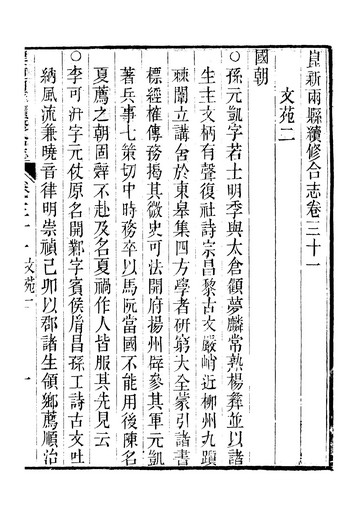 崑新兩縣續修合志卷三十一
文苑二
國朝
○孫元凱字若士明季與太倉顧夢麟常熟楊彝並以諸
生主文柄有聲復社詩宗昌黎古文嚴峭近柳州九躓
棘闈立講舍於東皋集四方學者研窮大全蒙引諸書
標經榷傳務揭其微史可法開府揚州辟參其軍元凱
著兵事七策切中時務卒以馬阮當國不能用後陳名
夏薦之朝固辭不赴及名夏禍作人皆服其先見云
○李可汧字元仗原名開鄴字賓侯胤昌孫工詩古文吐
納風流兼曉音律明崇禎己卯以郡諸生領鄉薦順治
文苑二 一